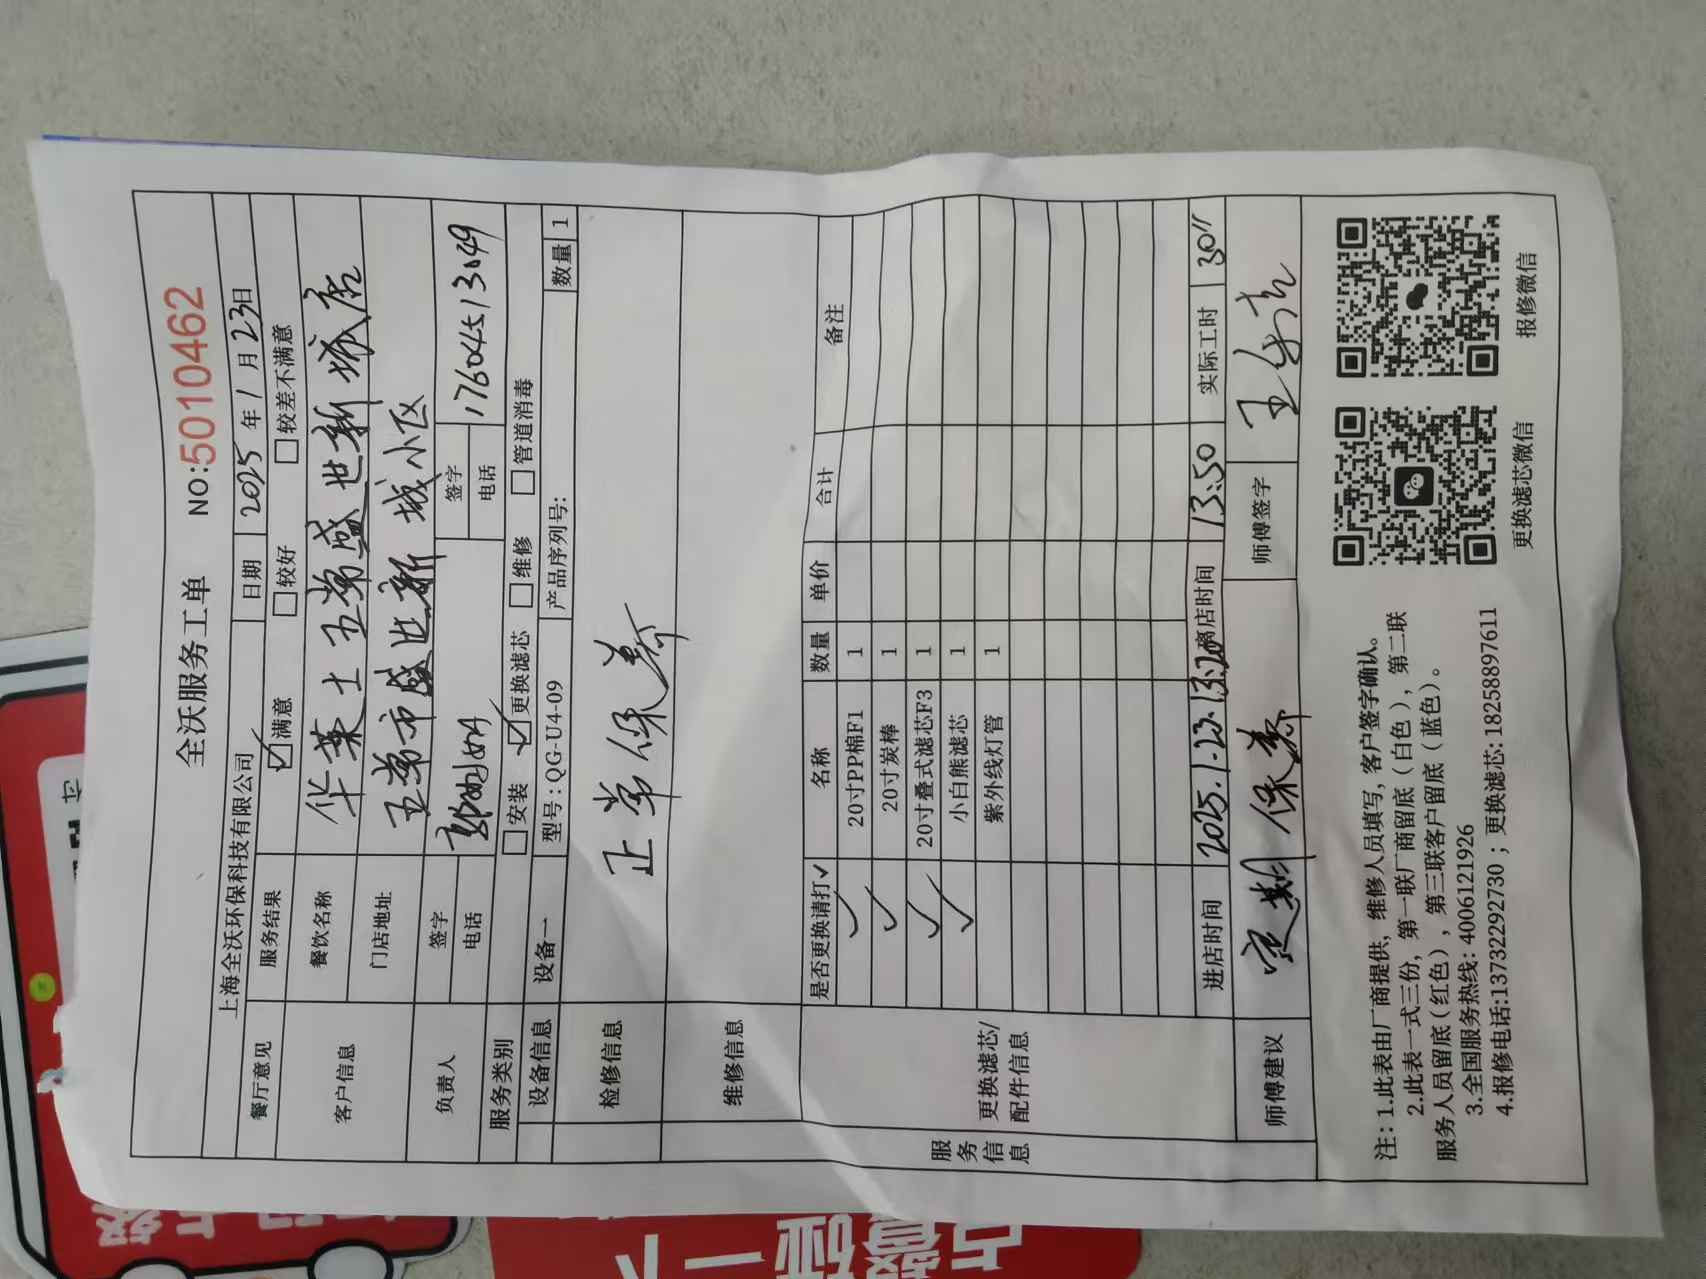 全沃服务工单 NO:5010462
上海全沃环保科技有限公司 日期 2025年1月23日
餐厅意见 服务结果 ☑满意 □较好 □较差不满意
客户信息 餐饮名称 华莱士五常盛世新城店
门店地址 五常市盛世新城小区
负责人 签字 签字
电话 电话 17604513049
服务类别 □安装 ☑更换滤芯 □维修 □管道消毒
设备信息 设备一 型号:QG-U4-09 产品序列号: 数量 1
检修信息 正常保养
维修信息
服务信息
更换滤芯/配件信息
是否更换请打✓ 名称 数量 单价 合计 备注
✓ 20寸PP棉F1 1
✓ 20寸炭棒 1
✓ 20寸叠式滤芯F3 1
✓ 小白熊滤芯 1
紫外线灯管 1
进店时间 2025.1-23.13:20 离店时间 13:50 实际工时 30''
师傅建议 定期保养 师傅签字
注:1.此表由厂商提供,维修人员填写,客户签字确认。
2.此表一式三份,第一联厂商留底(白色),第二联
服务人员留底(红色),第三联客户留底(蓝色)。
3.全国服务热线:4006121926
4.报修电话:13732292730;更换滤芯:18258897611
更换滤芯微信 报修微信
碰一下